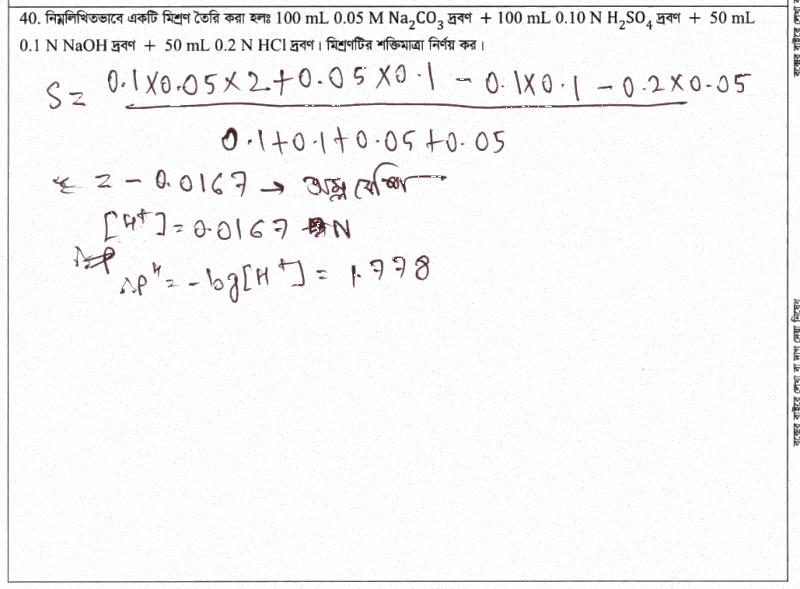 40. নিম্নলিখিতভাবে একটি মিশ্রণ তৈরি করা হলঃ 100 mL 0.05 M Na₂CO₃ দ্রবণ + 100 mL 0.10 N H₂SO₄ দ্রবণ + 50 mL
0.1 N NaOH দ্রবণ + 50 mL 0.2 N HCl দ্রবণ। মিশ্রণটির শক্তিমাত্রা নির্ণয় কর।
S = 0.1×0.05×2+0.05×0.1 - 0.1×0.1 - 0.2×0.05
0.1+0.1+0.05+0.05
= -0.0167 → অম্ল বেশি
[H⁺] = 0.0167 N
∴ pH = -log[H⁺] = 1.778